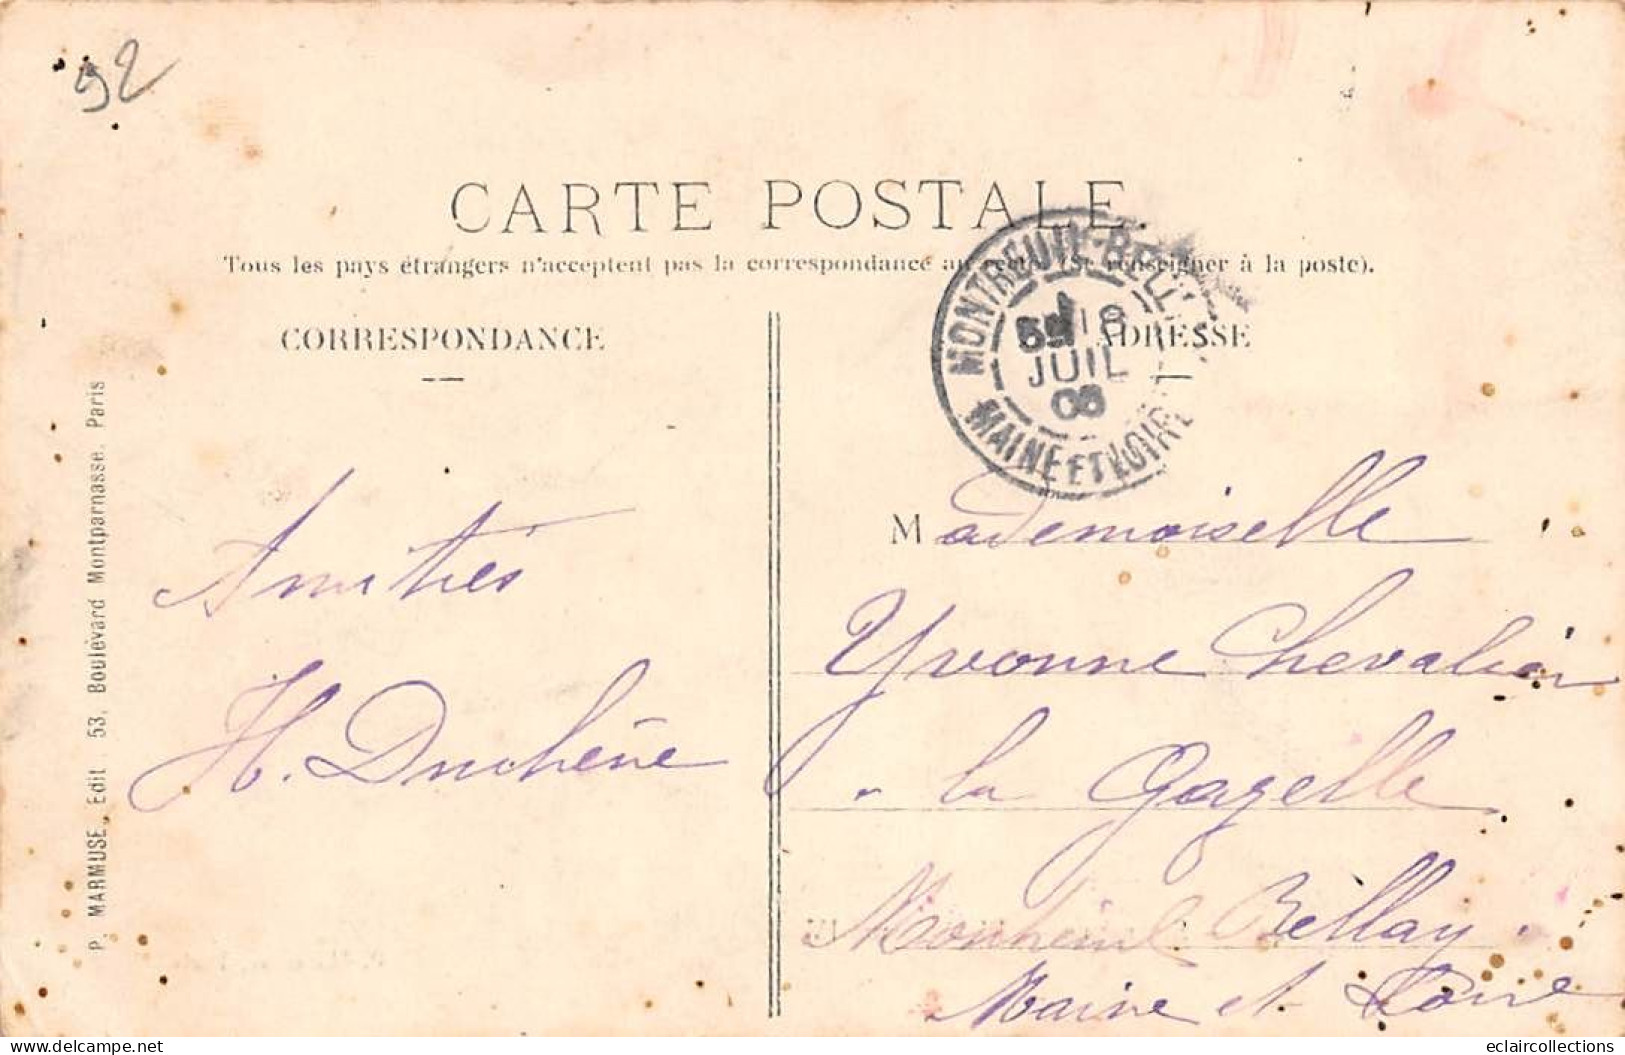 92
CARTE POSTALE.
Tous les pays étrangers n'acceptent pas la correspondance au recto. (Se renseigner à la poste).
CORRESPONDANCE
ADRESSE
MONTREUIL-BELLAY
18
JUIL
MAINE ET LOIRE
Amitiés
H. Duchêne
Mademoiselle
Yvonne Chevalier
la Gazelle
Montreuil Bellay.
Maine et Loire
P. MARMUSE, Edit 53, Boulevard Montparnasse. Paris
eclaircollections
delcampe.net